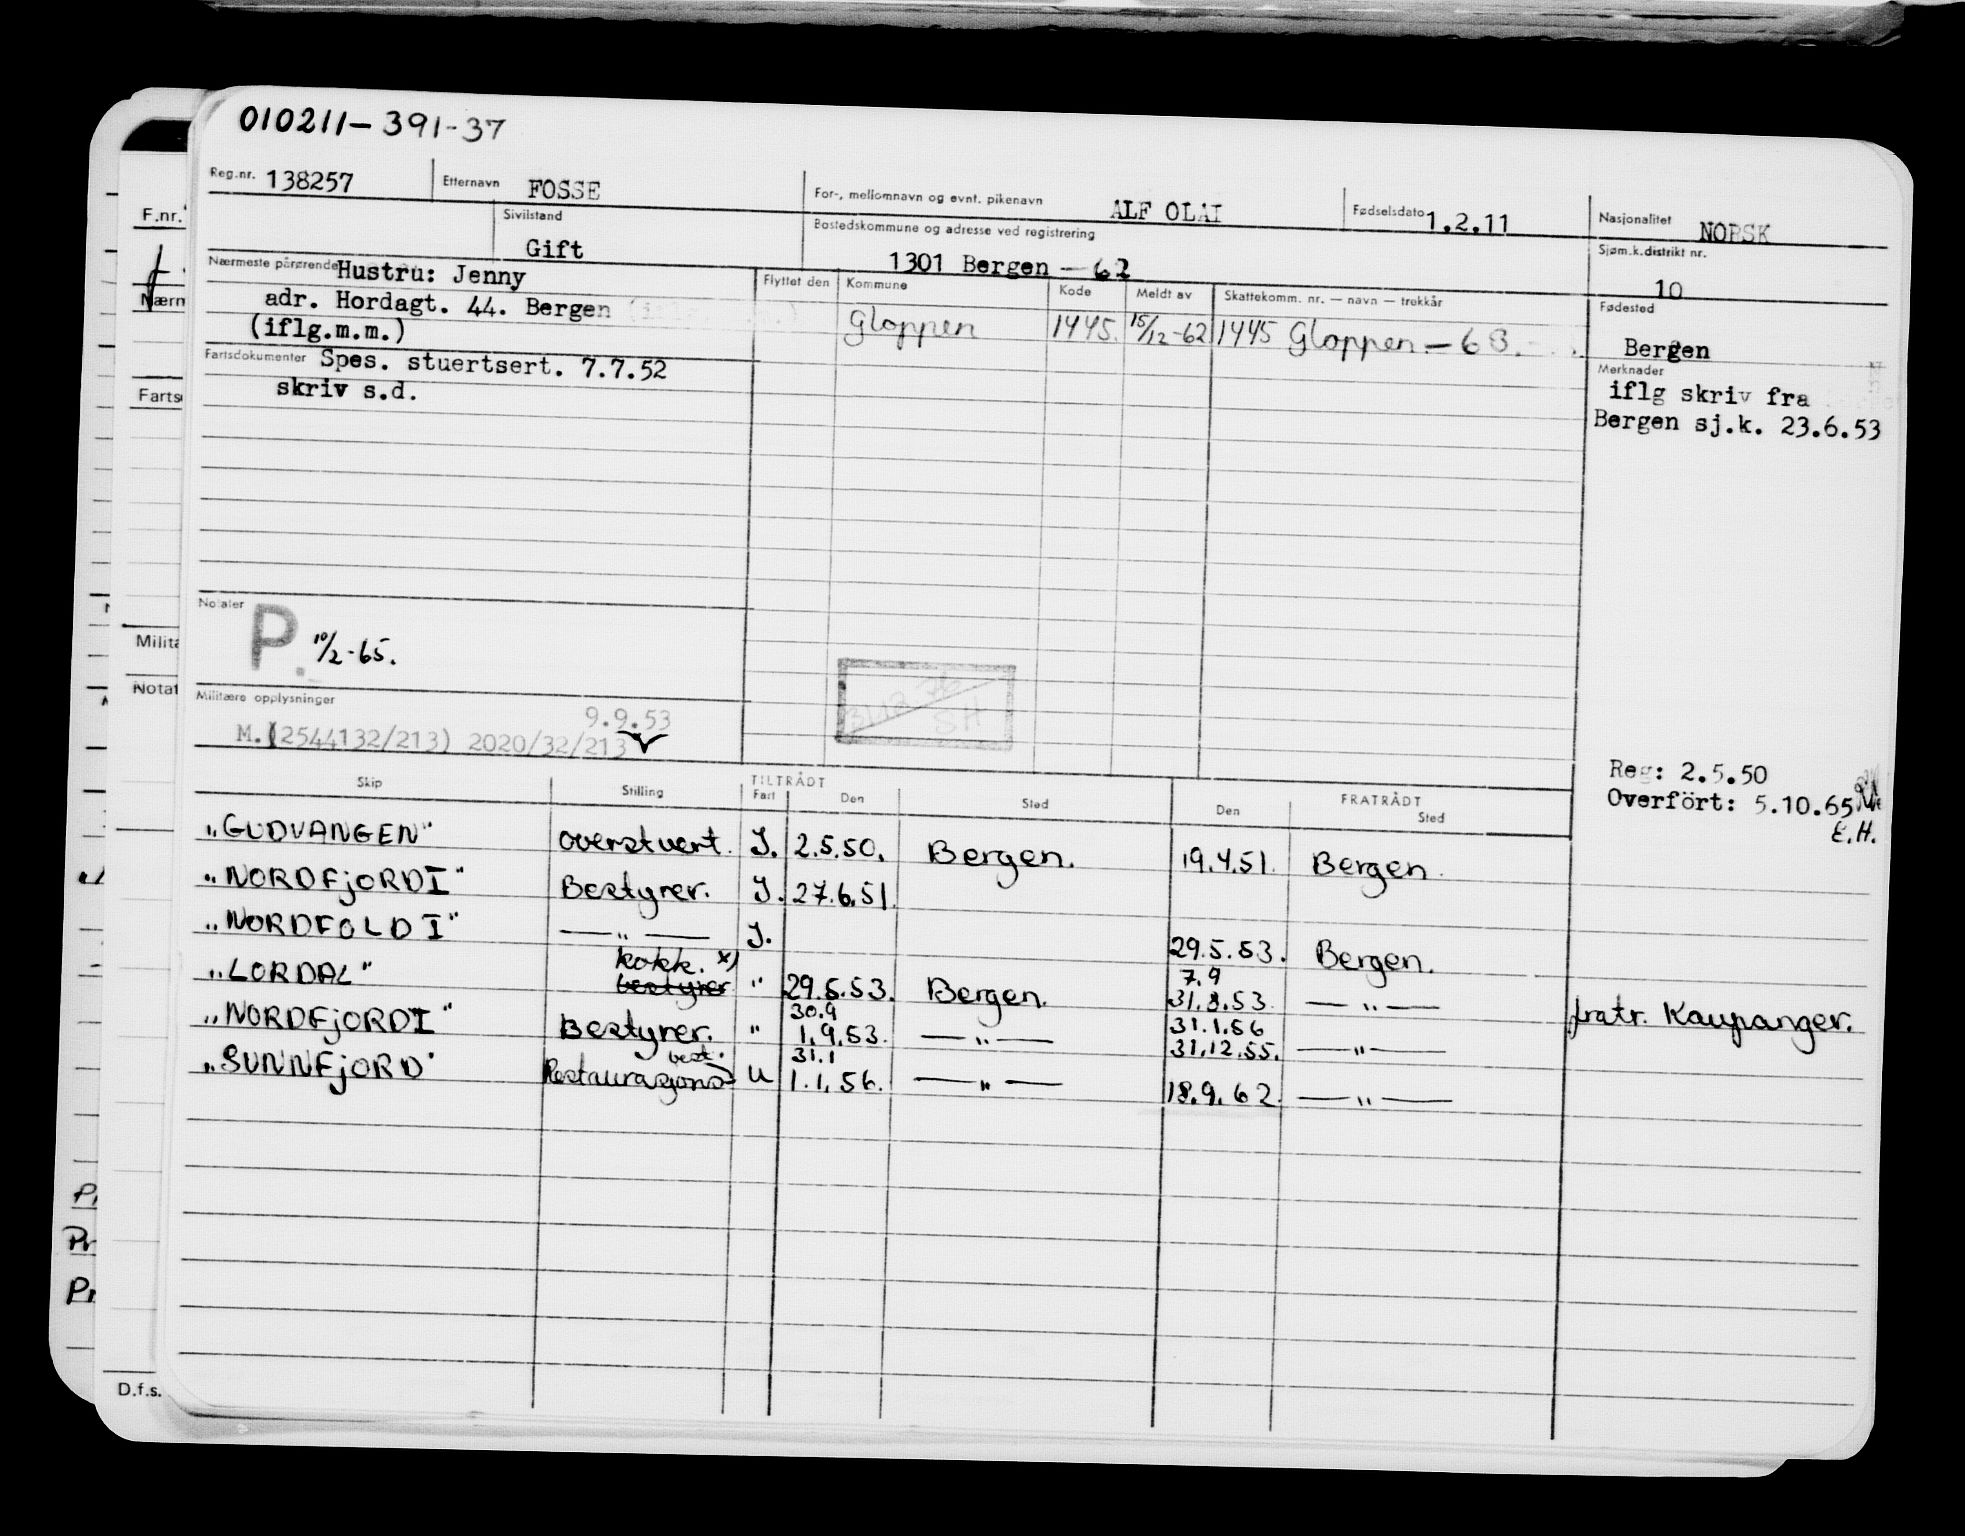 010211-391-37
Reg.nr. 138257 Etternavn FOSSE For-, mellomnavn og evnt. pikenavn ALF OLAI Fødselsdato 1.2.11 Nasjonalitet NORSK
Sivilstand Gift Bostedskommune og adresse ved registrering 1301 Bergen - 62 Sjøm.k.distrikt nr. 10
Nærmeste pårørende Hustru: Jenny Flyttet den Kommune Kode Meldt av Skattekomm. nr. — navn — trekkår Fødested
adr. Hordagt. 44. Bergen Gloppen 1445. 15/12-62 1445 Gloppen - 63. Bergen
(iflg.m.m.)
Fartsdokumenter Spes. stuertsert. 7.7.52 Merknader
skriv s.d. iflg skriv fra
Bergen sj.k. 23.6.53
Notater
P. 10/2-65.
31.12.76
SH
Militære opplysninger 9.9.53
M.(2544132/213) 2020/32/213
Reg: 2.5.50
Overfört: 5.10.65
E.H.
Skip Stilling TILTRÅDT FRATRÅDT
Fart Den Sted Den Sted
"GUDVANGEN" overstuert. I. 2.5.50. Bergen. 19.4.51. Bergen.
"NORDFjORD I" Bestyrer. I. 27.6.51.
"NORDFOLD I" — " — I. 29.5.53. Bergen.
kokk. x) 7.9
"LORDAL" bestyrer " 29.5.53. Bergen. 31.8.53. — " — fratr. Kaupanger.
30.9 31.1.56
"NORDFjORD I" Bestyrer. " 1.9.53. — " — 31.12.55. — " —
best. 31.1
"SUNNFjORD" Restaurasjons- U 1.1.56. — " — 18.9.62. — " —
F.nr.
Nærm
Farts
Milit
Notat
D.f.s.